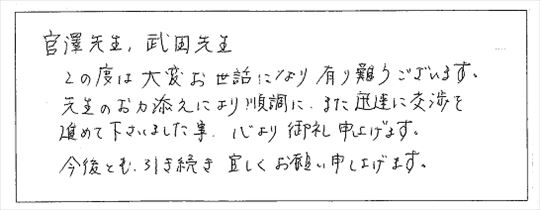 宮澤先生, 武田先生
この度は大変お世話になり有り難うございます。
先生のお力添えにより順調に、また迅速に交渉を
進めて下さいました事、心より御礼申上げます。
今後とも、引き続き宜しくお願い申し上げます。